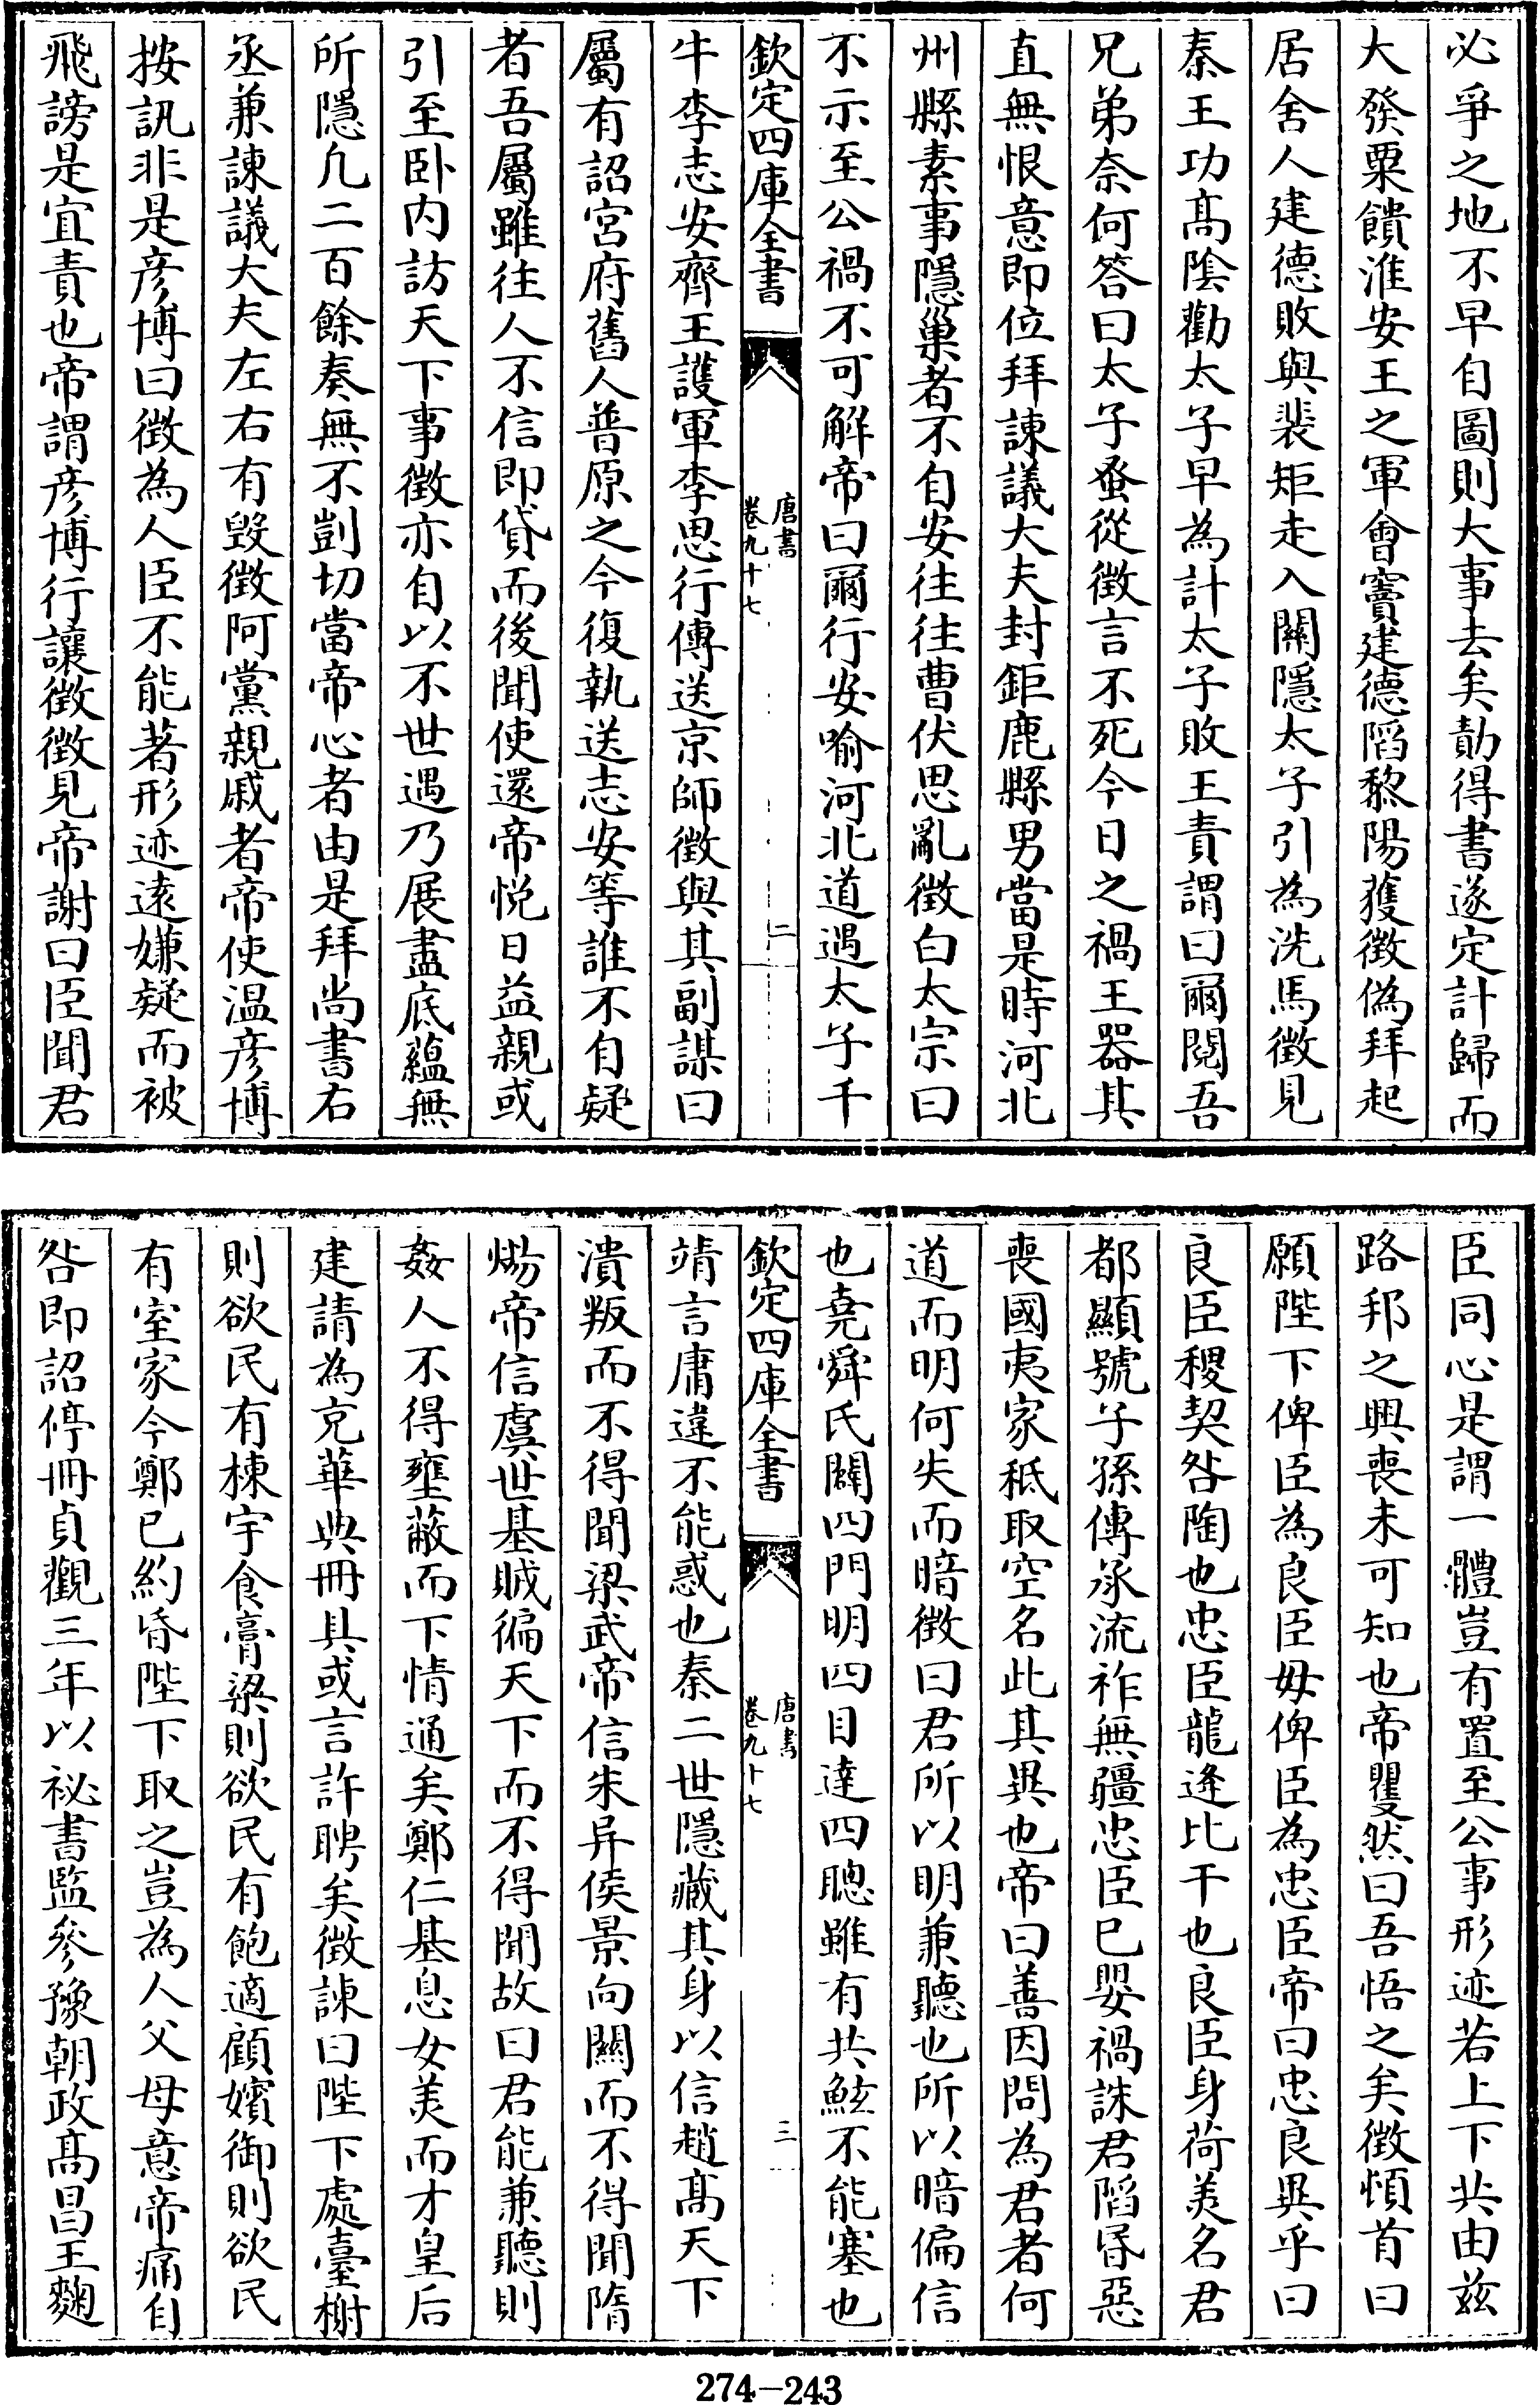 必爭之地不早自圖則大事去矣勣得書遂定計歸而
大發粟饋淮安王之軍會竇建德陷黎陽獲徵偽拜起
居舍人建德敗與裴矩走入關隱太子引為洗馬徵見
秦王功髙陰勸太子早為計太子敗王責謂曰爾䦧吾
兄弟奈何答曰太子蚤從徵言不死今日之禍王器其
直無恨意即位拜諫議大夫封鉅鹿縣男當是時河北
州縣素事隱巢者不自安往往曹伏思亂徵白太宗曰
不示至公禍不可解帝曰爾行安喻河北道遇太子千
欽定四庫全書
唐書
卷九十七
二
牛李志安齊王護軍李思行傳送京師徵與其副謀曰
屬有詔宮府舊人普原之今復執送志安等誰不自疑
者吾屬雖往人不信即貸而後聞使還帝悅日益親或
引至卧内訪天下事徵亦自以不世遇乃展盡底藴無
所隱凢二百餘奏無不剴切當帝心者由是拜尚書右
丞兼諫議大夫左右有毁徵阿黨親戚者帝使温彦博
按訊非是彦博曰徵為人臣不能著形迹遠嫌疑而被
飛謗是宜責也帝謂彦博行讓徵徵見帝謝曰臣聞君
臣同心是謂一體豈有置至公事形迹若上下共由兹
路邦之興喪未可知也帝瞿然曰吾悟之矣徵頓首曰
願陛下俾臣為良臣毋俾臣為忠臣帝曰忠良異乎曰
良臣稷契咎陶也忠臣龍逄比干也良臣身荷美名君
都顯號子孫傳承流祚無疆忠臣已嬰禍誅君陷昏惡
喪國夷家秪取空名此其異也帝曰善因問為君者何
道而明何失而暗徵曰君所以明兼聽也所以暗偏信
也堯舜氏闢四門明四目達四聰雖有共鯀不能塞也
欽定四庫全書
唐書
卷九十七
三
靖言庸違不能惑也秦二世隱藏其身以信趙髙天下
潰叛而不得聞梁武帝信朱异侯景向關而不得聞隋
煬帝信虞世基賊徧天下而不得聞故曰君能兼聽則
姦人不得壅蔽而下情通矣鄭仁基息女美而才皇后
建請為充華典冊具或言許聘矣徵諫曰陛下處臺榭
則欲民有棟宇食膏粱則欲民有飽適顧嬪御則欲民
有室家今鄭已約昏陛下取之豈為人父母意帝痛自
咎即詔停冊貞觀三年以祕書監參豫朝政髙昌王麴
274-243